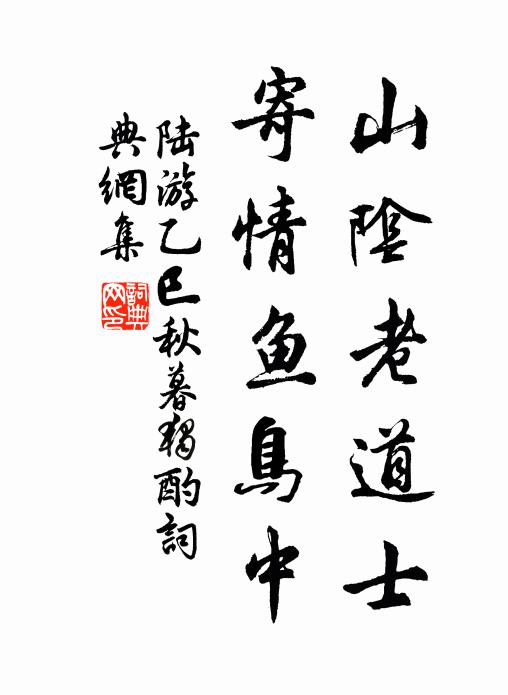 山陰老道士
寄情鱼鳥中
陆游乙巳秋暮獨酌詞
典網集
詞典网印